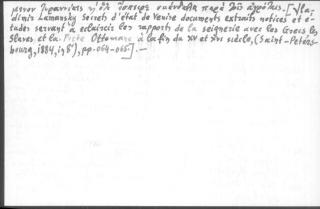 παρὰ τοῖς [Vla-
dimir Lamansky Secrets d'état de Venise documents extraits notices et é-
tudes servant à eclaircir les rapports de la seigneurie avec les Grecs les
Slaves et la Porte Ottomane à la fin du XV et XVI siècle, (Saint-Péters-
bourg, 1884, in 8°), pp. 064-065]. —